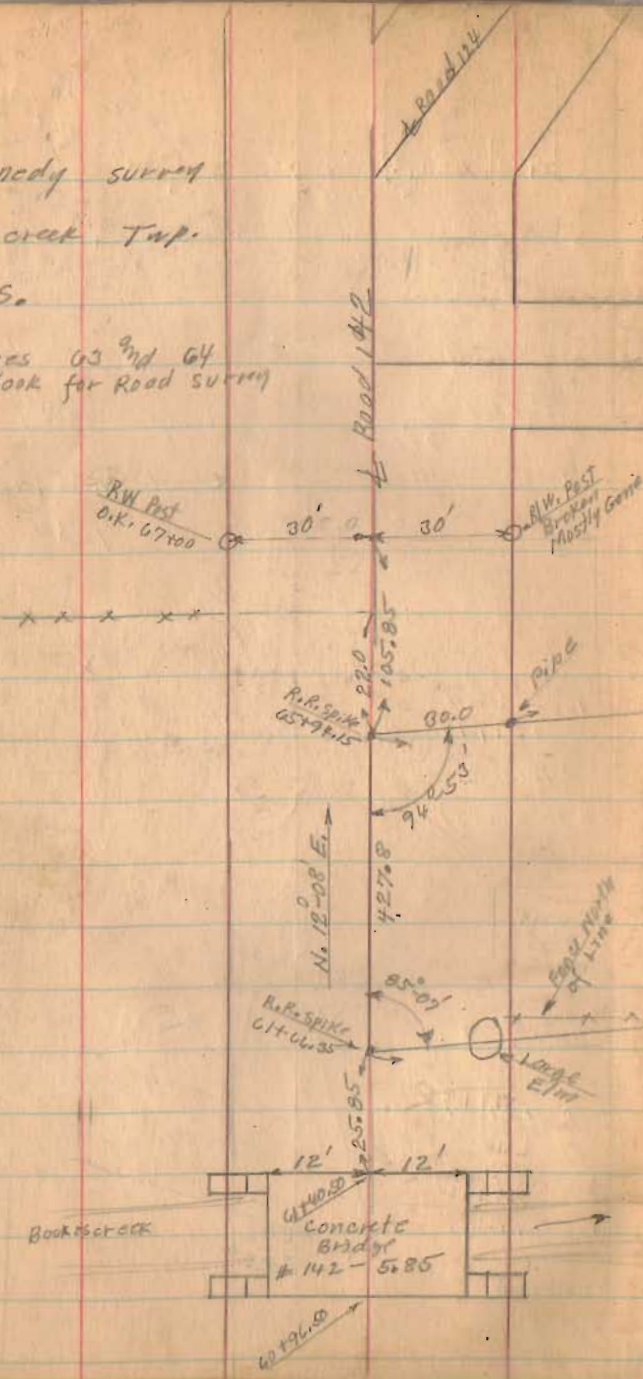 ℄ Road 124
nedy survey
creek Twp.
s.
es 63 and 64
ook for Road survey
℄ Road 142
R.W. Post
O.K. 67+00
30'
30'
R.W. Post
Broken
Mostly Gone
x x x x x
22.0
105.85
Pipe
R.R. Spike
65+94.15
30.0
94°53'
N. 12°-08' E.
427.8
Fence North
of Line
85°-07'
R.R. Spike
61+66.35
Large
Elm
25.85
12'
12'
61+40.50
Bookescreek
Concrete
Bridge
# 142 - 5.85
60+96.50